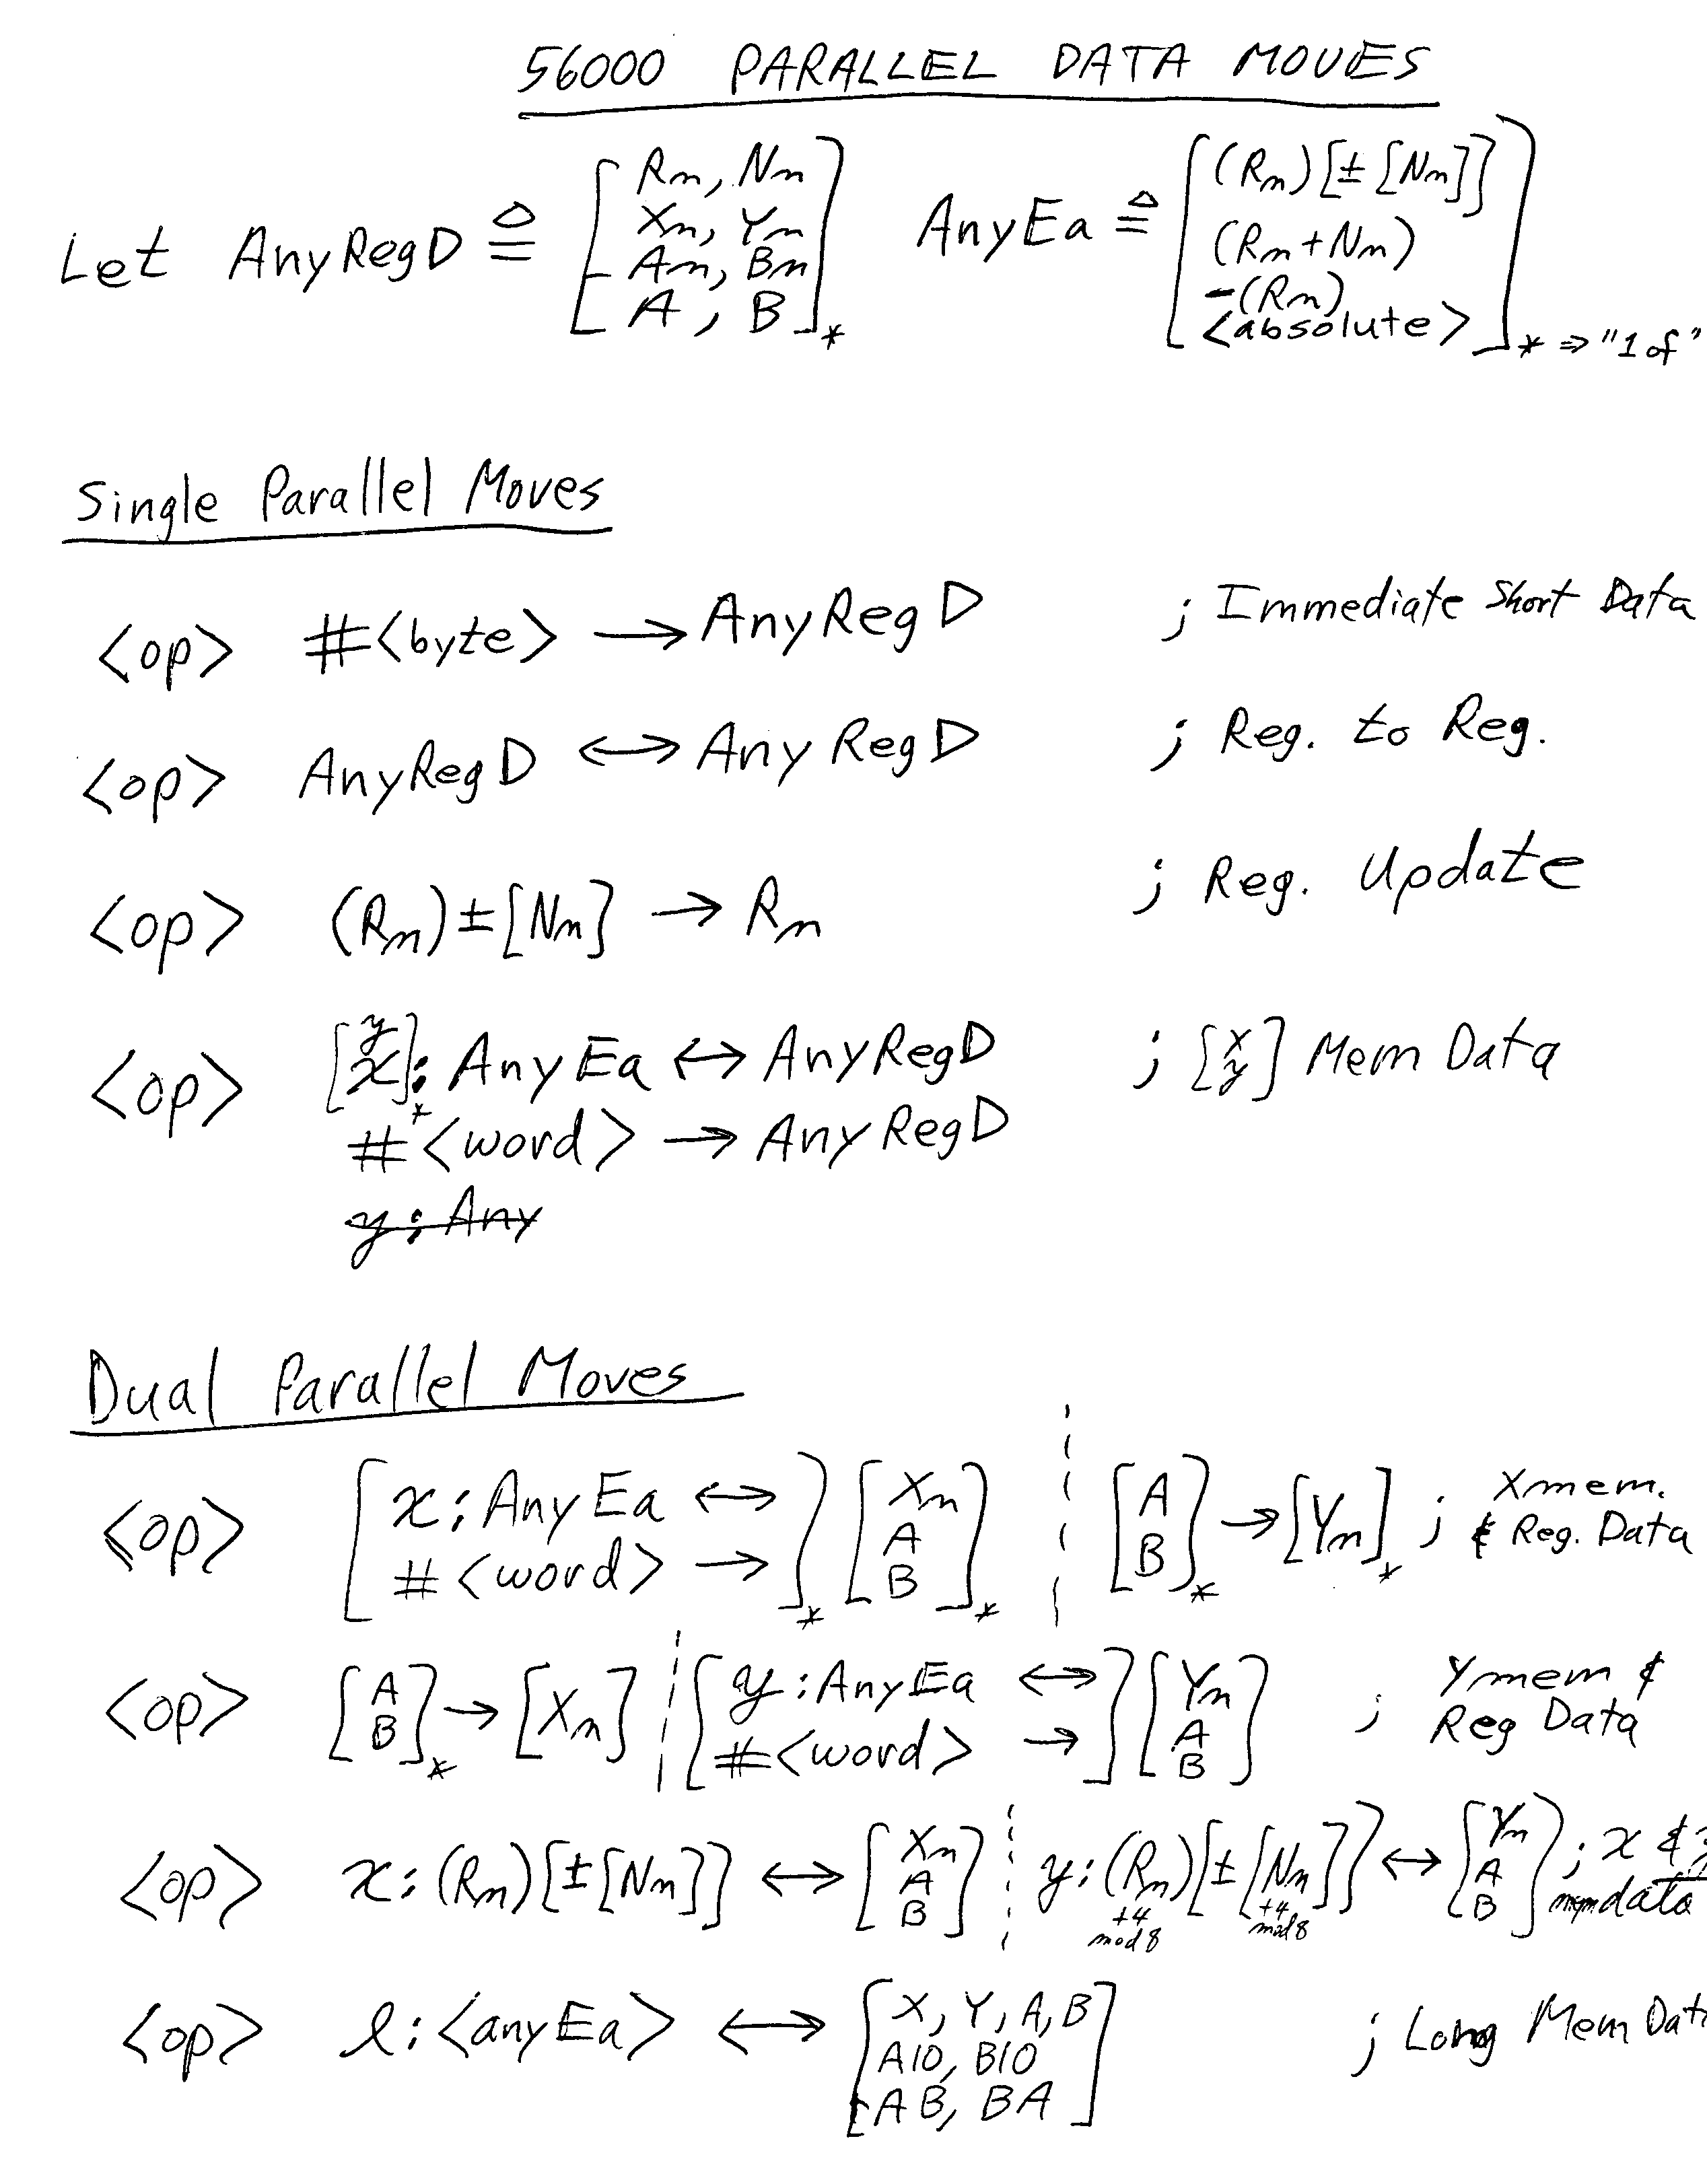 56000 PARALLEL DATA MOVES
Let AnyRegD ≙ [Rn, Nn
Xn, Yn
An, Bn
A, B]*
AnyEa ≙ [(Rn)[±[Nn]]
(Rn+Nn)
-(Rn)
<absolute>]* ⇒ "1 of"
Single Parallel Moves
<op> #<byte> → AnyRegD ; Immediate Short Data
<op> AnyRegD ↔ AnyRegD ; Reg. to Reg.
<op> (Rn)±[Nn] → Rn ; Reg. Update
<op> [y x]*: AnyEa ↔ AnyRegD ; [x y] Mem Data
#<word> → AnyRegD
y: Any
Dual Parallel Moves
<op> [x: AnyEa ↔
#<word> →]* [Xn
A
B]* ¦ [A
B]* → [Yn]* ; Xmem.
& Reg. Data
<op> [A
B]* → [Xn] ¦ [y: AnyEa ↔
#<word> →] [Yn
A
B] ; Ymem &
Reg Data
<op> x: (Rn)[±[Nn]] ↔ [Xn
A
B] ¦ y: (Rn)[±[Nn]] ↔ [Yn
A
B] ; x & y
mem data
+4
mod 8
+4
mod 8
<op> l: <anyEa> ↔ [X, Y, A, B
A10, B10
AB, BA] ; Long Mem Dat